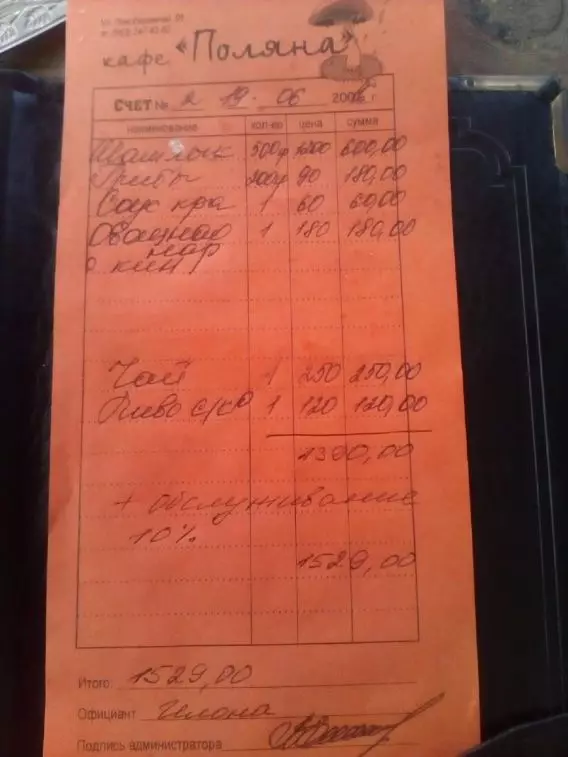 кафе "Поляна"
СЧЕТ № 2 19. 06 200 г
наименование кол-во цена сумма
Шашлык 500г 1200 600,00
Грибы 200г 90 180,00
Соус кра 1 60 60,00
Овощная 1 180 180,00
нар
Чай 1 250 250,00
Пиво с/к 1 120 120,00
1390,00
+ обслуживание
10%
1529,00
Итого 1529,00
Официант Илона
Подпись администратора